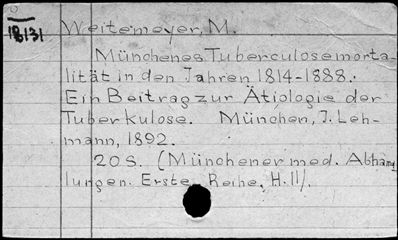 18131
Weitemeyer, M.
Münchenes Tuberculosemorta-
lität in den Jahren 1814-1888.
Ein Beitrag zur Ätiologie der
Tuberkulose. München, J. Leh-
mann, 1892.
20 S. (Münchener med. Abhand
lungen. Erste Reihe, H. 11).